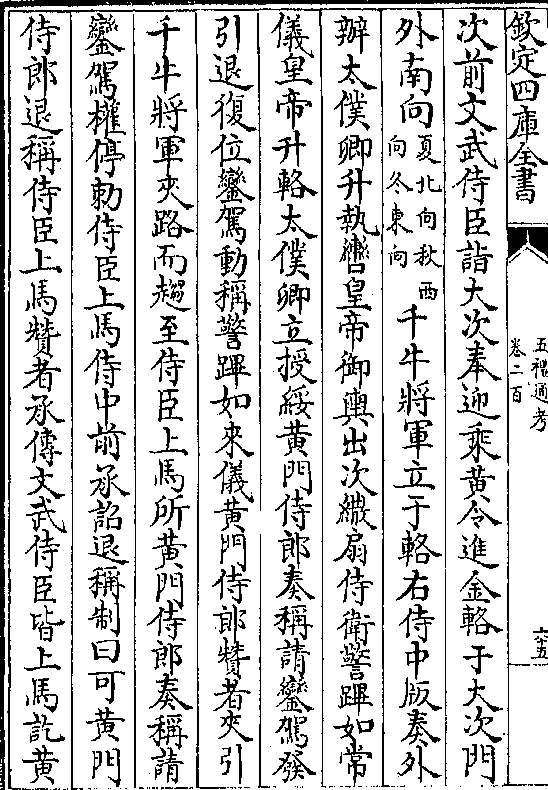 欽定四庫全書
五禮通考
卷二百
六十五
次前文武侍臣詣大次奉迎乘黃令進金輅于大次門
外南向夏北向秋西向冬東向千牛將軍立于輅右侍中版奏外
辦太僕卿升執轡皇帝御輿出次繖扇侍衛警蹕如常
儀皇帝升輅太僕卿立授綏黃門侍郎奏稱請鑾駕發
引退復位鑾駕動稱警蹕如來儀黃門侍郎贊者夾引
千牛將軍夾路而趨至侍臣上馬所黃門侍郎奏稱請
鑾駕權停勅侍臣上馬侍中前承詔退稱制曰可黃門
侍郎退稱侍臣上馬贊者承傳文武侍臣皆上馬訖黃